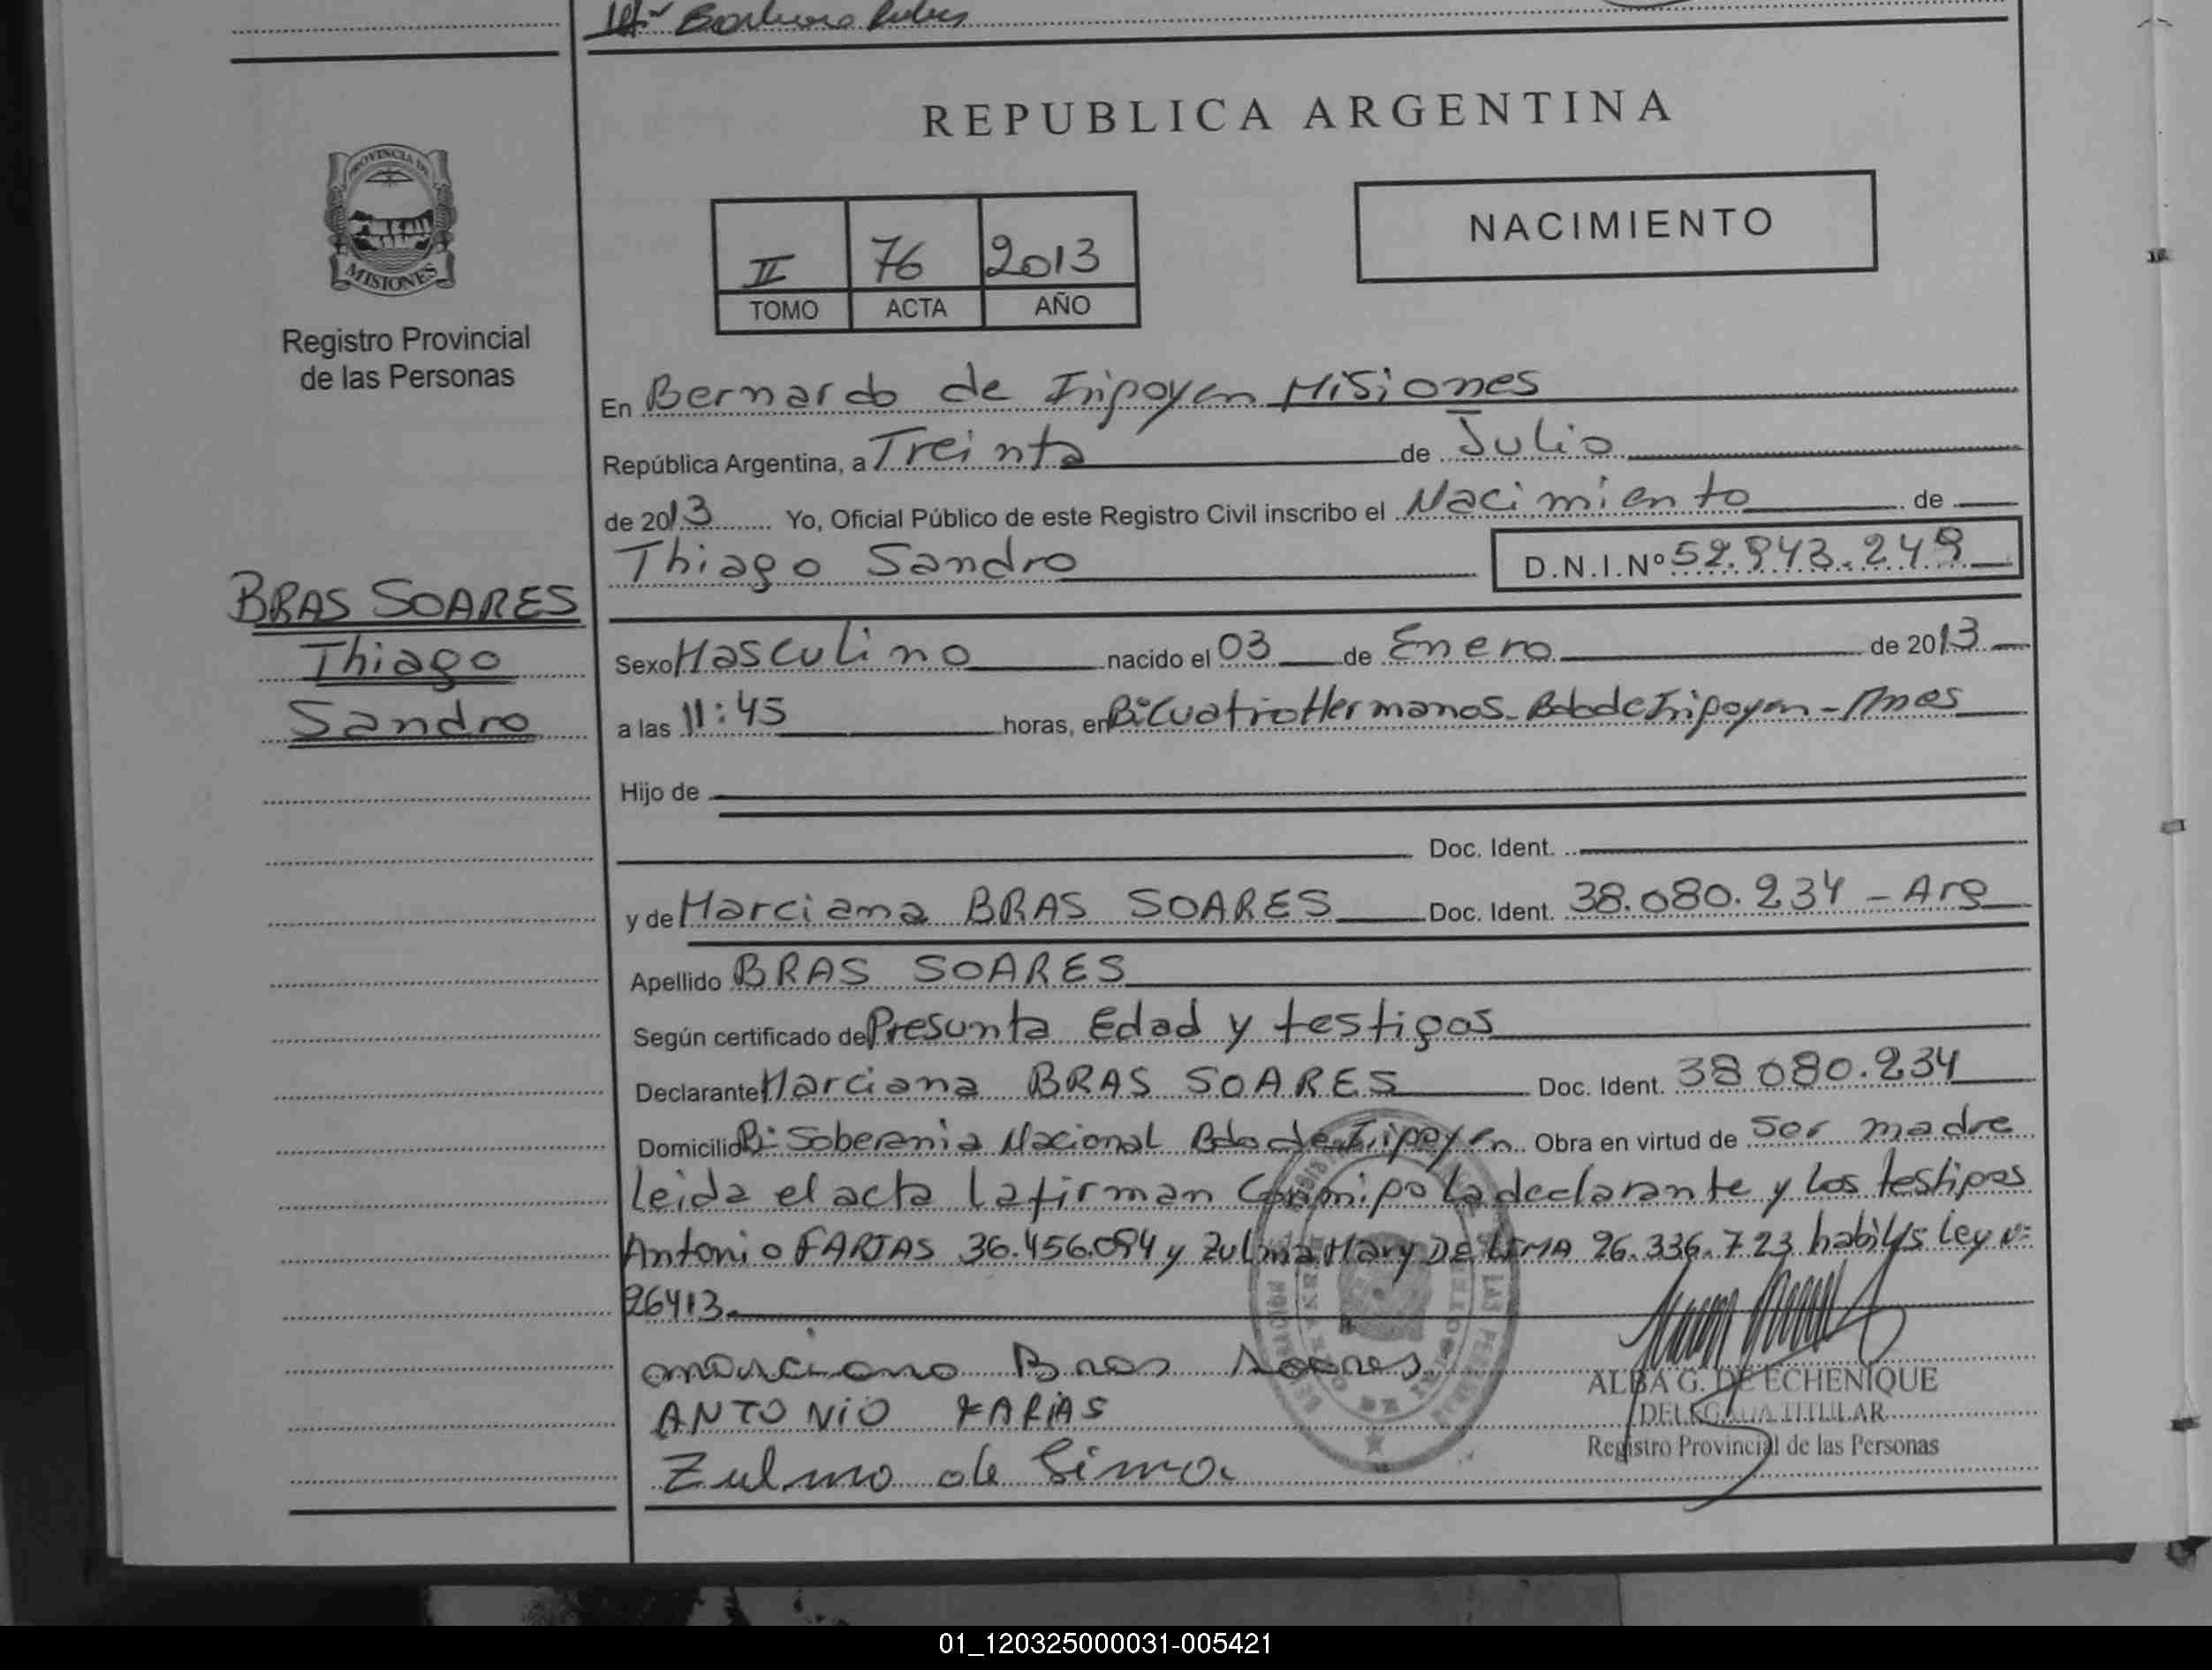 REPUBLICA ARGENTINA
PROVINCIA DE
MISIONES
Registro Provincial
de las Personas
II 76 2013
TOMO ACTA AÑO
NACIMIENTO
En Bernardo de Iripoyen Misiones
República Argentina, a Treinta de Julio
de 2013 Yo, Oficial Público de este Registro Civil inscribo el Nacimiento de
Thiago Sandro D.N.I.Nº 52.943.249
BRAS SOARES
Thiago
Sandro
Sexo Masculino nacido el 03 de Enero de 2013
a las 11:45 horas, en Bº Cuatro Hermanos - Bdo de Iripoyen - Mnes
Hijo de
Doc. Ident.
y de Marciana BRAS SOARES Doc. Ident. 38.080.234 - Arg
Apellido BRAS SOARES
Según certificado de Presunta Edad y testigos
Declarante Marciana BRAS SOARES Doc. Ident. 38 080.234
Domicilio Bº Soberania Nacional Bdo de Iripoyen Obra en virtud de ser madre
leida el acta la firman Conmigo la declarante y los testigos
Antonio FARIAS 36.456.094 y Zulma Mary DE LIMA 26.336.723 habil Ley Nº
26413.
Marciana Bras Soares
ANTONIO FARIAS
Zulma de Lima
ALBA G. DE ECHENIQUE
DELEGADA TITULAR
Registro Provincial de las Personas
01_120325000031-005421